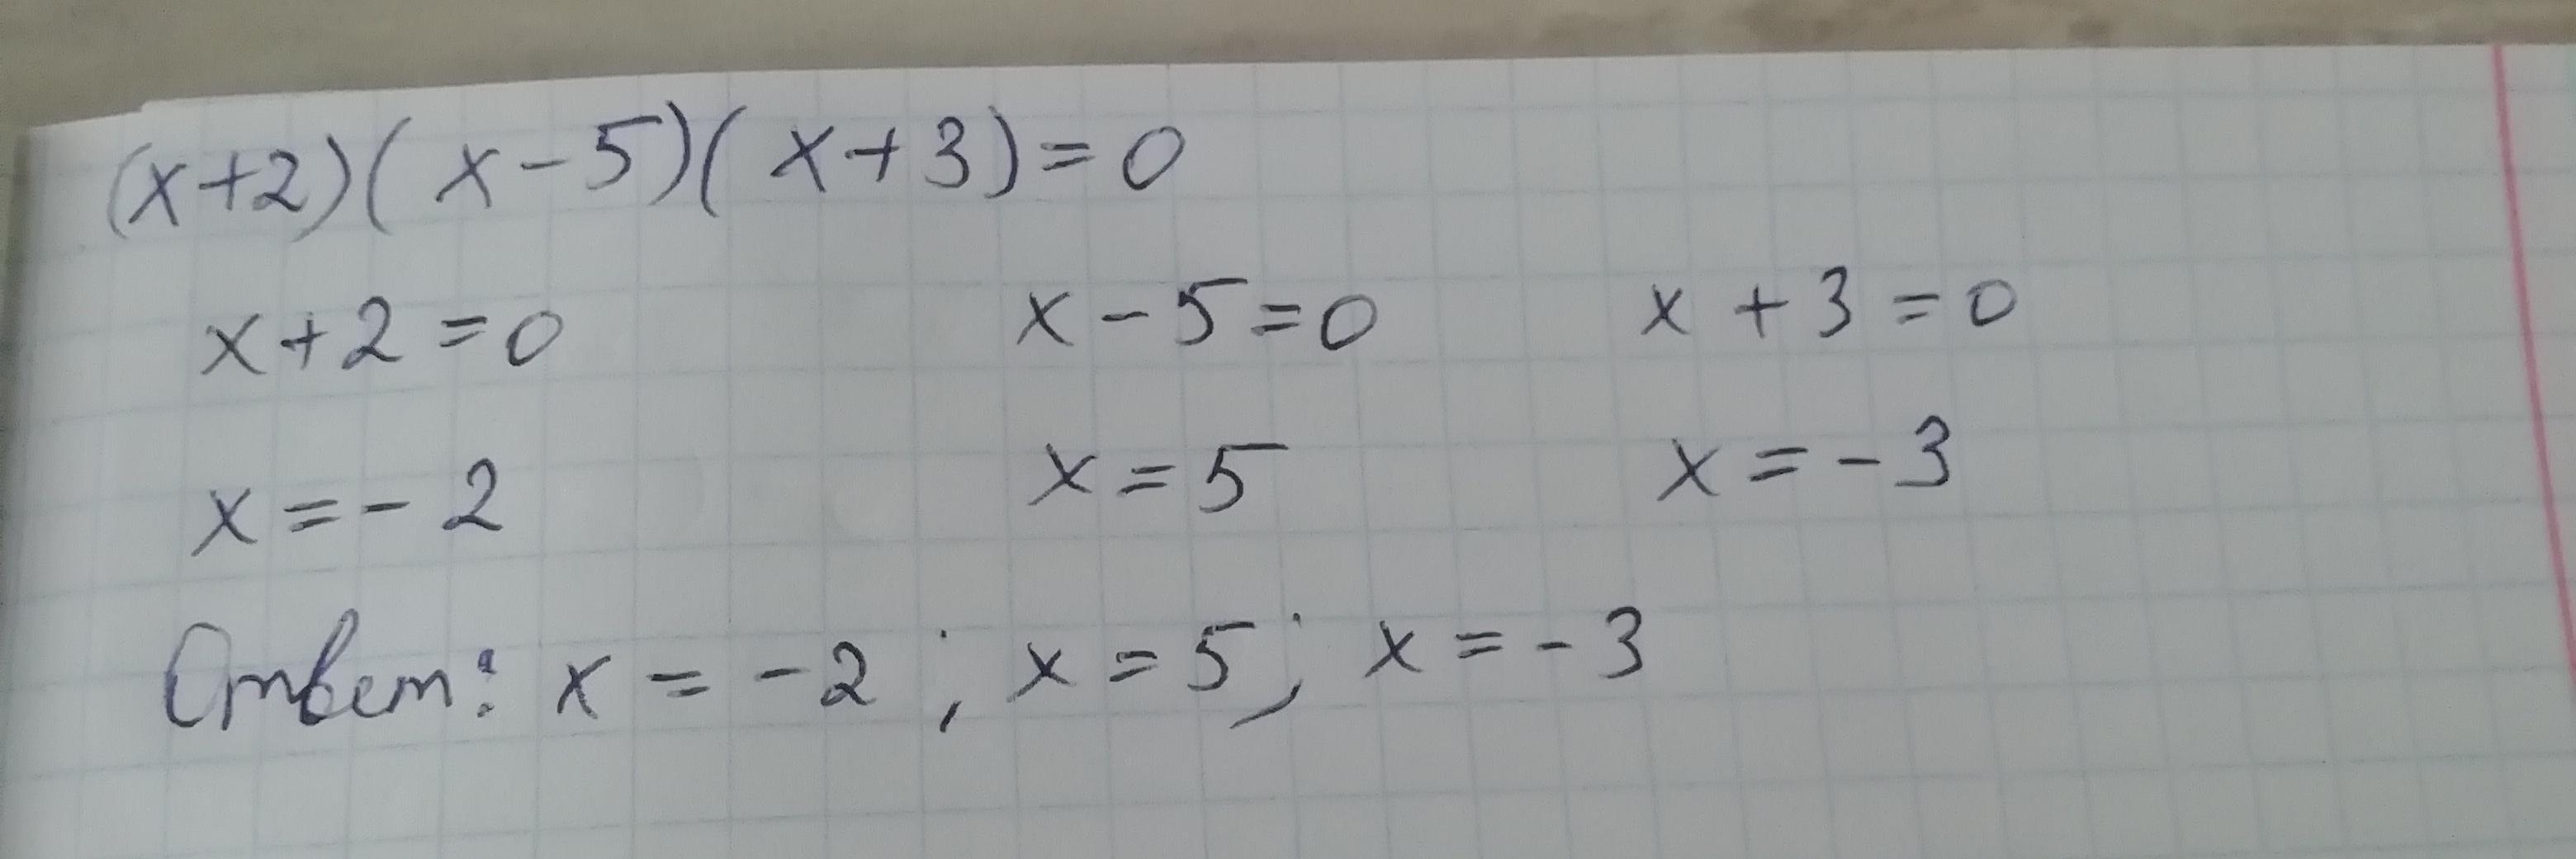 (x+2)(x-5)(x+3)=0
x+2=0 x-5=0 x+3=0
x=-2 x=5 x=-3
Ответ: x=-2; x=5; x=-3